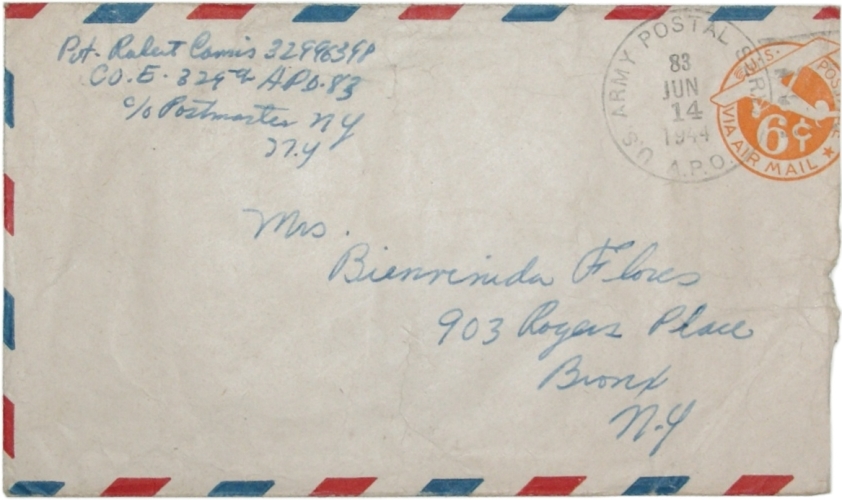 Pvt. Robert Camis 32996398
CO. E. 329th A.P.O. 83
c/o Postmaster NY
N.Y
U.S. ARMY POSTAL SERVICE
83
JUN
14
1944
A.P.O.
U.S. POSTAGE
6¢
VIA AIR MAIL
Mrs.
Bienvenida Flores
903 Rogers Place
Bronx
N.Y